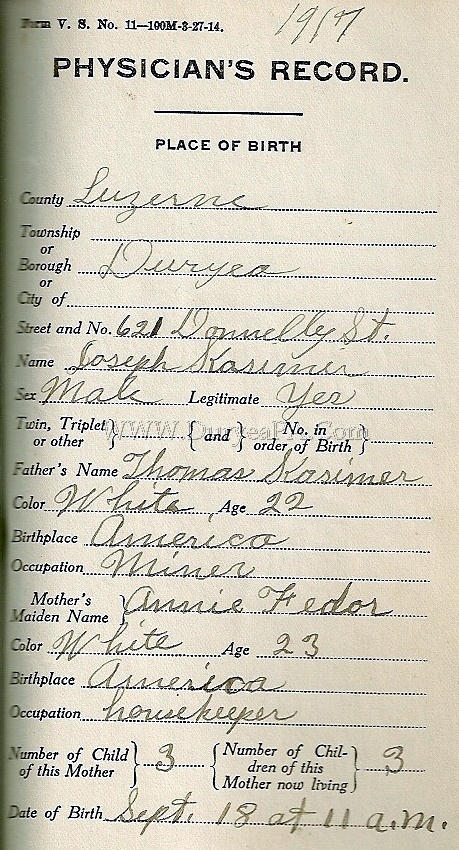 1917
Form V. S. No. 11—100M-3-27-14.
PHYSICIAN'S RECORD.
PLACE OF BIRTH
County Luzerne
Township
or
Borough Duryea
or
City of
Street and No. 621 Donnelly St.
Name Joseph Kasimer
Sex Male Legitimate Yes
Twin, Triplet or other } { and } No. in order of Birth }
www.DuryeaPa.Com
Father's Name Thomas Kasimer
Color White Age 22
Birthplace America
Occupation Miner
Mother's Maiden Name } Annie Fedor
Color White Age 23
Birthplace America
Occupation housekeeper
Number of Child of this Mother } 3 { Number of Chil-
dren of this
Mother now living } 3
Date of Birth Sept. 18 at 11 a.m.